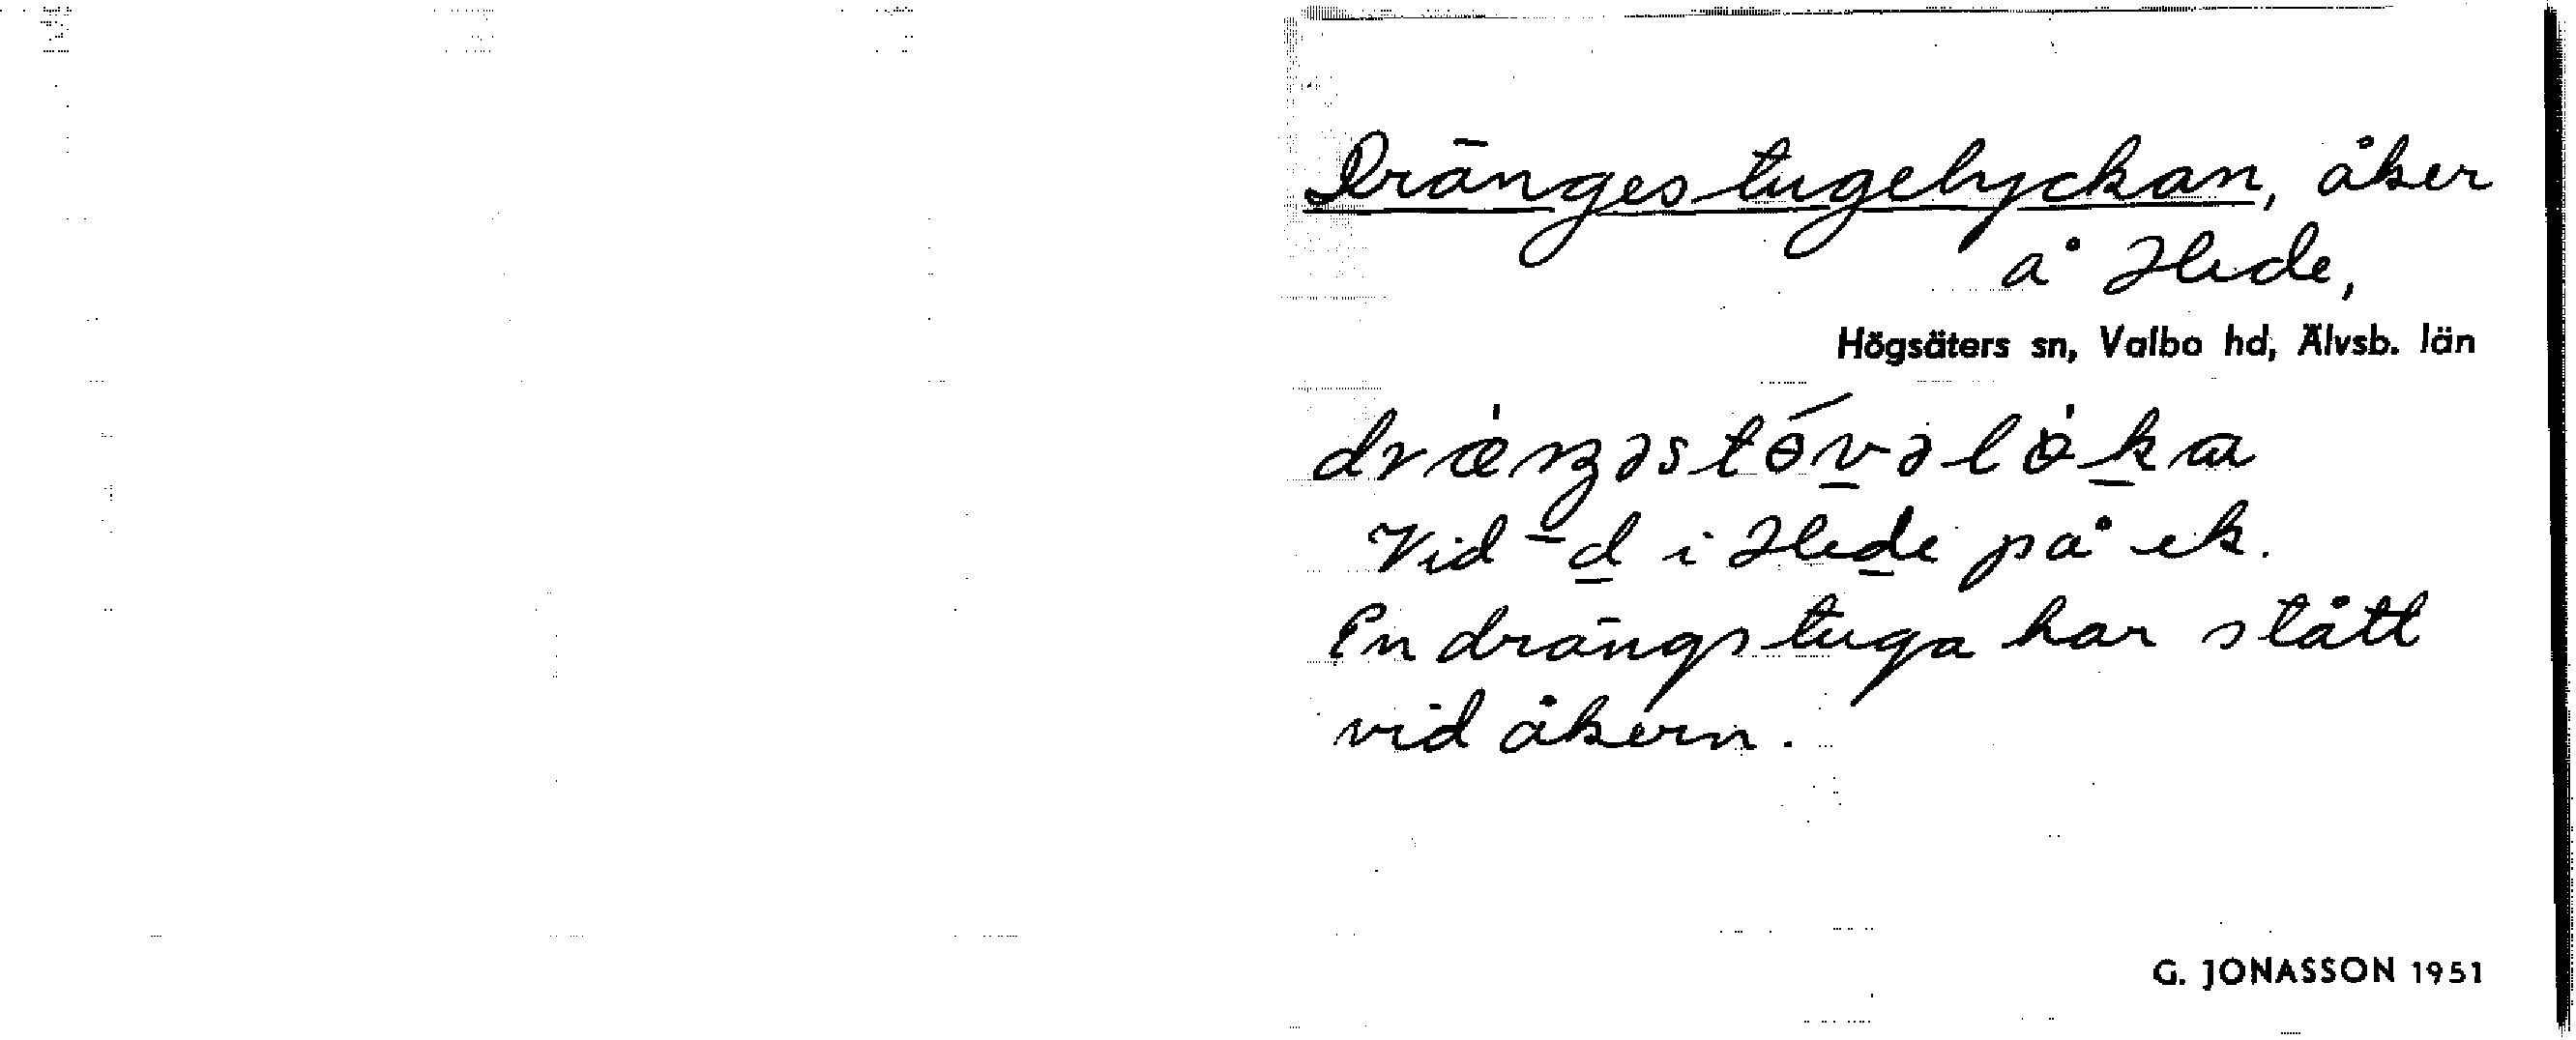 Drängestugelyckan, åker
å Hede,
Högsäters sn, Valbo hd, Älvsb. län
Vid d i Hede på ek.
En drängstuga har stått
vid åkern.
G. JONASSON 1951